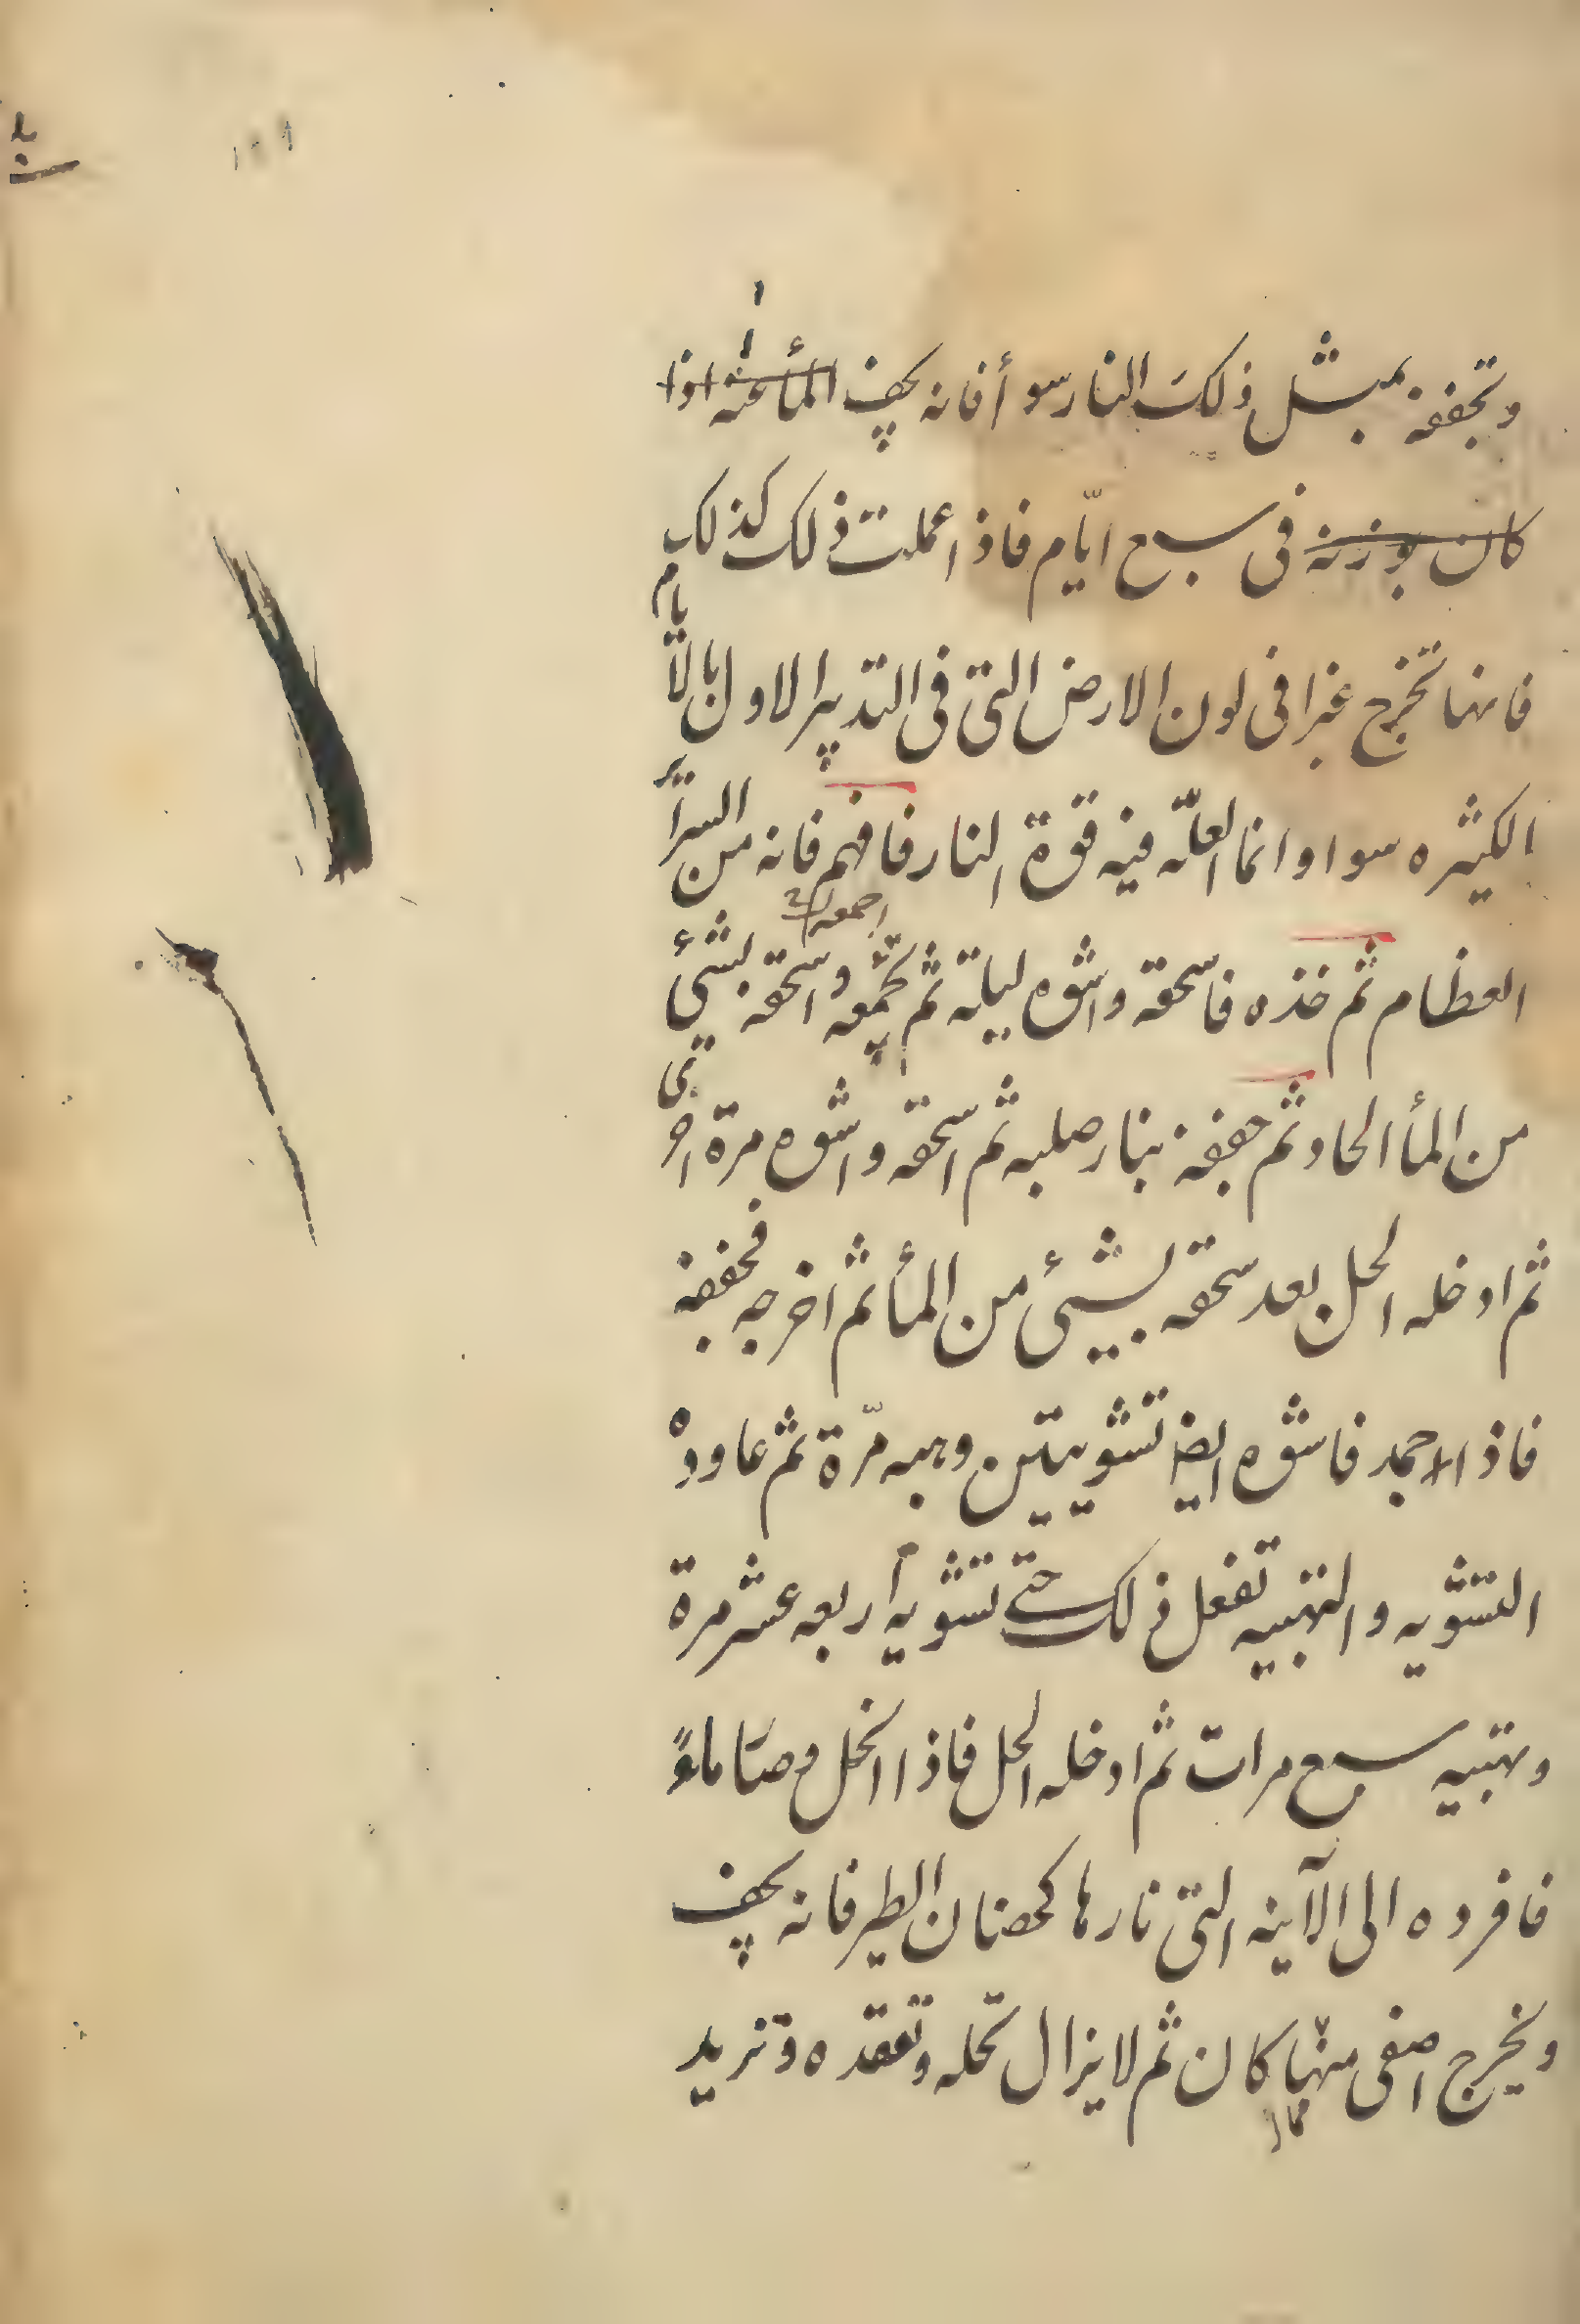 وتجففه بمثل ذلك النار سوأ فانه يجف المأ عنه اذا
كان بوزنه فى سبع ايّام فاذا عملت ذلك كذلك
فانها تخرج غبرا فى لون الارض التى فى التدبير الاول بالأيام
الكثيره سوا وانما العلّه فيه قوة النار فافهم فانه من السرائر
العظام ثم خذه فاسحقه واشوه ليلة ثم تجمعه واسحقه بشئ
اجمعه
من المأ الحاد ثم جففه بنار صلبه ثم اسحقه واشوه مرة اخرى
ثم ادخله الحل بعد سحقه بشيئ من المأ ثم اخرجه فجففه
فاذا جمد فاشوه ايضا تشويتين وهبه مرّة ثم عاوده
التشويه والتهبيه تفعل ذلك حتى تشويه أربعه عشر مرة
وتهبيه سبع مرات ثم ادخله الحل فاذا انحل وصار ماءً
فافرده الى الآنيه التى نارها كحضان الطير فانه يجف
ويخرج اصفى منها كان ثم لا يزال تحله وتعقده وتزيد
مما